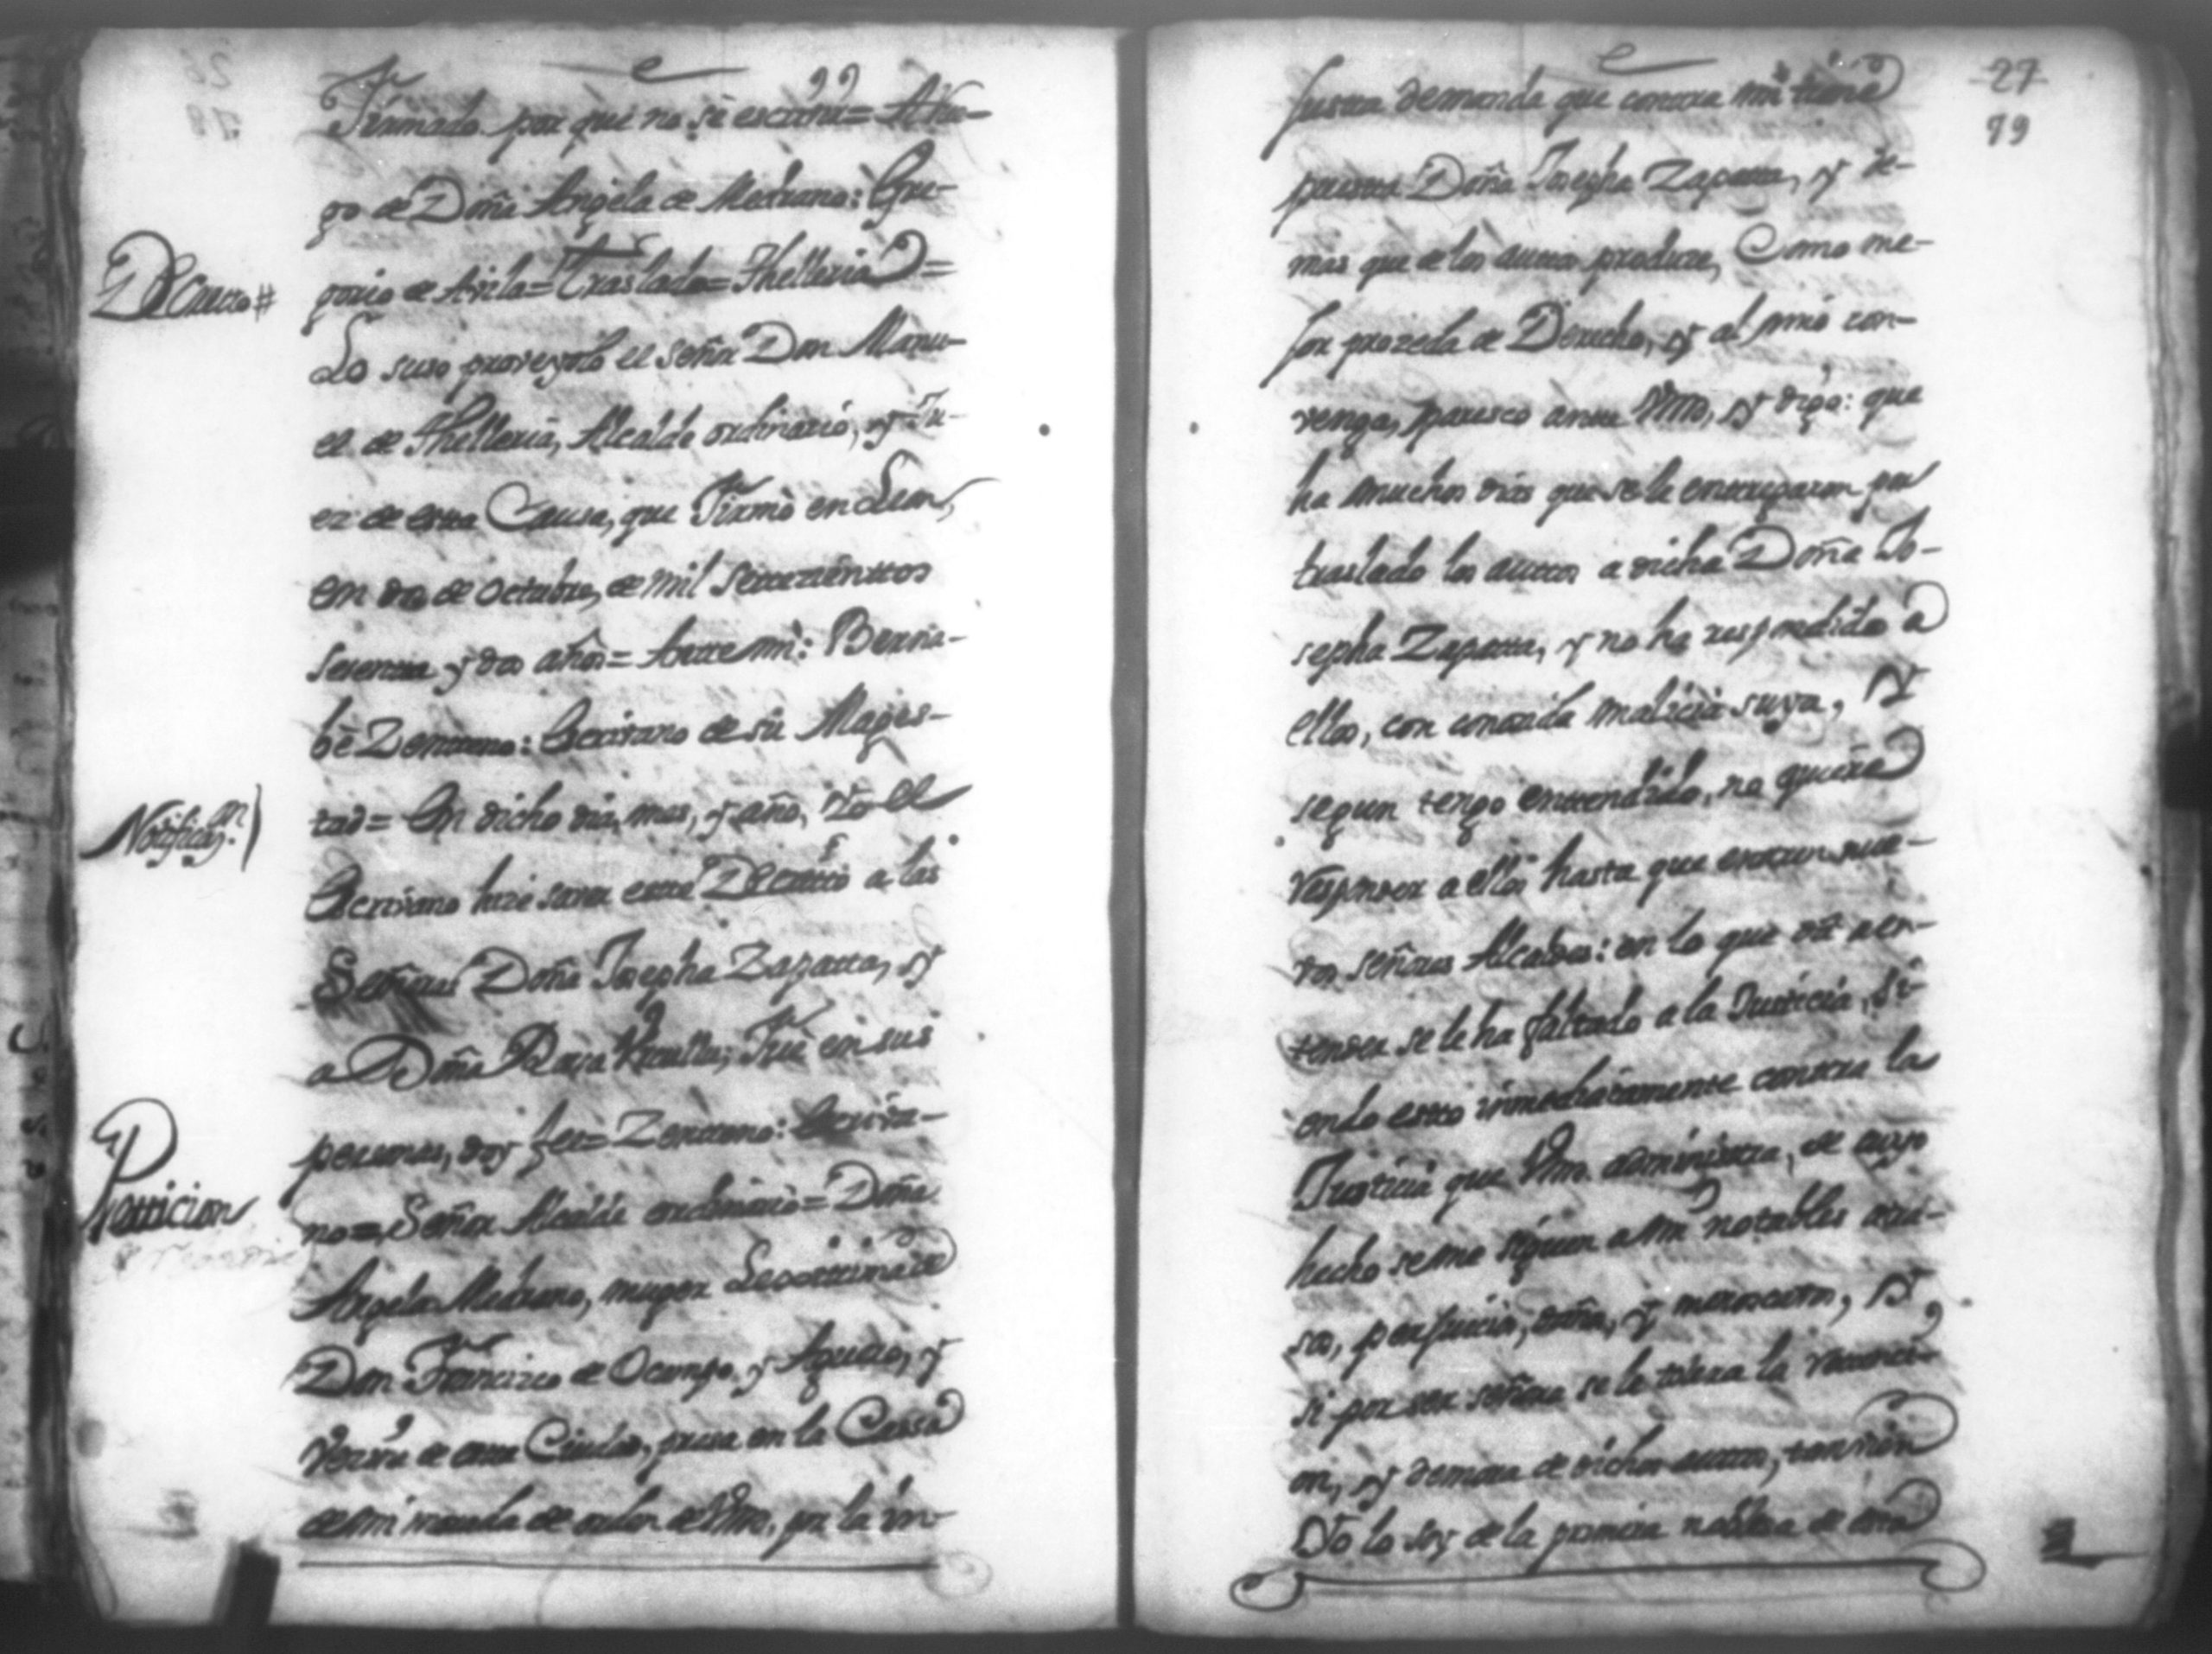 Firmado por que no se escribir= A Rue-
go de Doña Angela de Medrano: Gre-
Decretto #
gorio de Avila= Traslado= Thelleria=
Lo suso proveyoló el señor Don Manu-
el de Thelleria, Alcalde ordinario, y Ju-
ez de esta Causa, que Firmò en Leon,
en dos de Octubre, de mil settezienttos
setentta y dos años= Ante mi: Berna-
bè Zenteno: Escrivano de su Mages-
Notificaz.on)
tad= En dicho dia, mes, y año, Yo el
Escrivano hize saver este Decretto a las
Señoras Doña Josepha Zapatta, y
a Doña Rosa fue en sus
personas, doy fee= Zenteno: Escriva-
Petticion
no= Señor Alcalde ordinario= Doña
Angela Medrano, muger Lexittima de
Don Francisco de Ocampo y Agüero, y
Vezina de esta Ciudad, presa en la Cassa
de mi morada de orden de Vm. por la in-
27
79
justa demanda que contra mi tiene
puesta Doña Josepha Zapatta, y de-
mas que de los auttos produze, Como me-
jor prozeda de Derecho, y al mio con-
venga, paresco ante Vm, y digo: que
ha muchos dias que se le entregaron por
traslado los auttos a dicha Doña Jo-
sepha Zapatta, y no ha respondido a
ellos, con conozida malicia suya, Y
segun tengo enttendido, no quiere
responder a ellos hasta que entren nue-
vos señores Alcaldes: en lo que dà a en-
tender se le ha faltado a la Justicia, si-
endo esto inmediatamente contra la
Justicia que Vm. administra, de cuyo
hecho se me siguen a mi notables atra-
sos, perjuicios, daños, y menoscavos, Y,
si por ser señora se le tolera la retenci-
on, y demora de dichos auttos, tanvien
Yo lo soy de la primera nobleza de esta